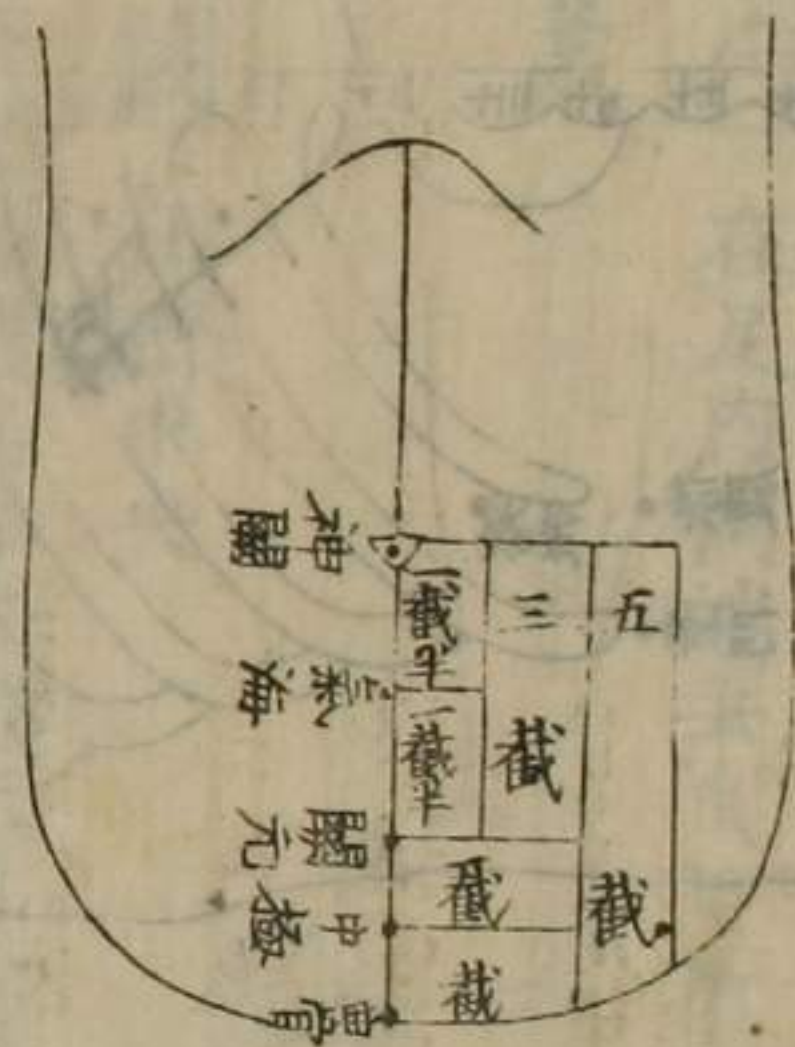 神闕
氣海
關元
中極
一截半
一截半
三截
五截
截
截